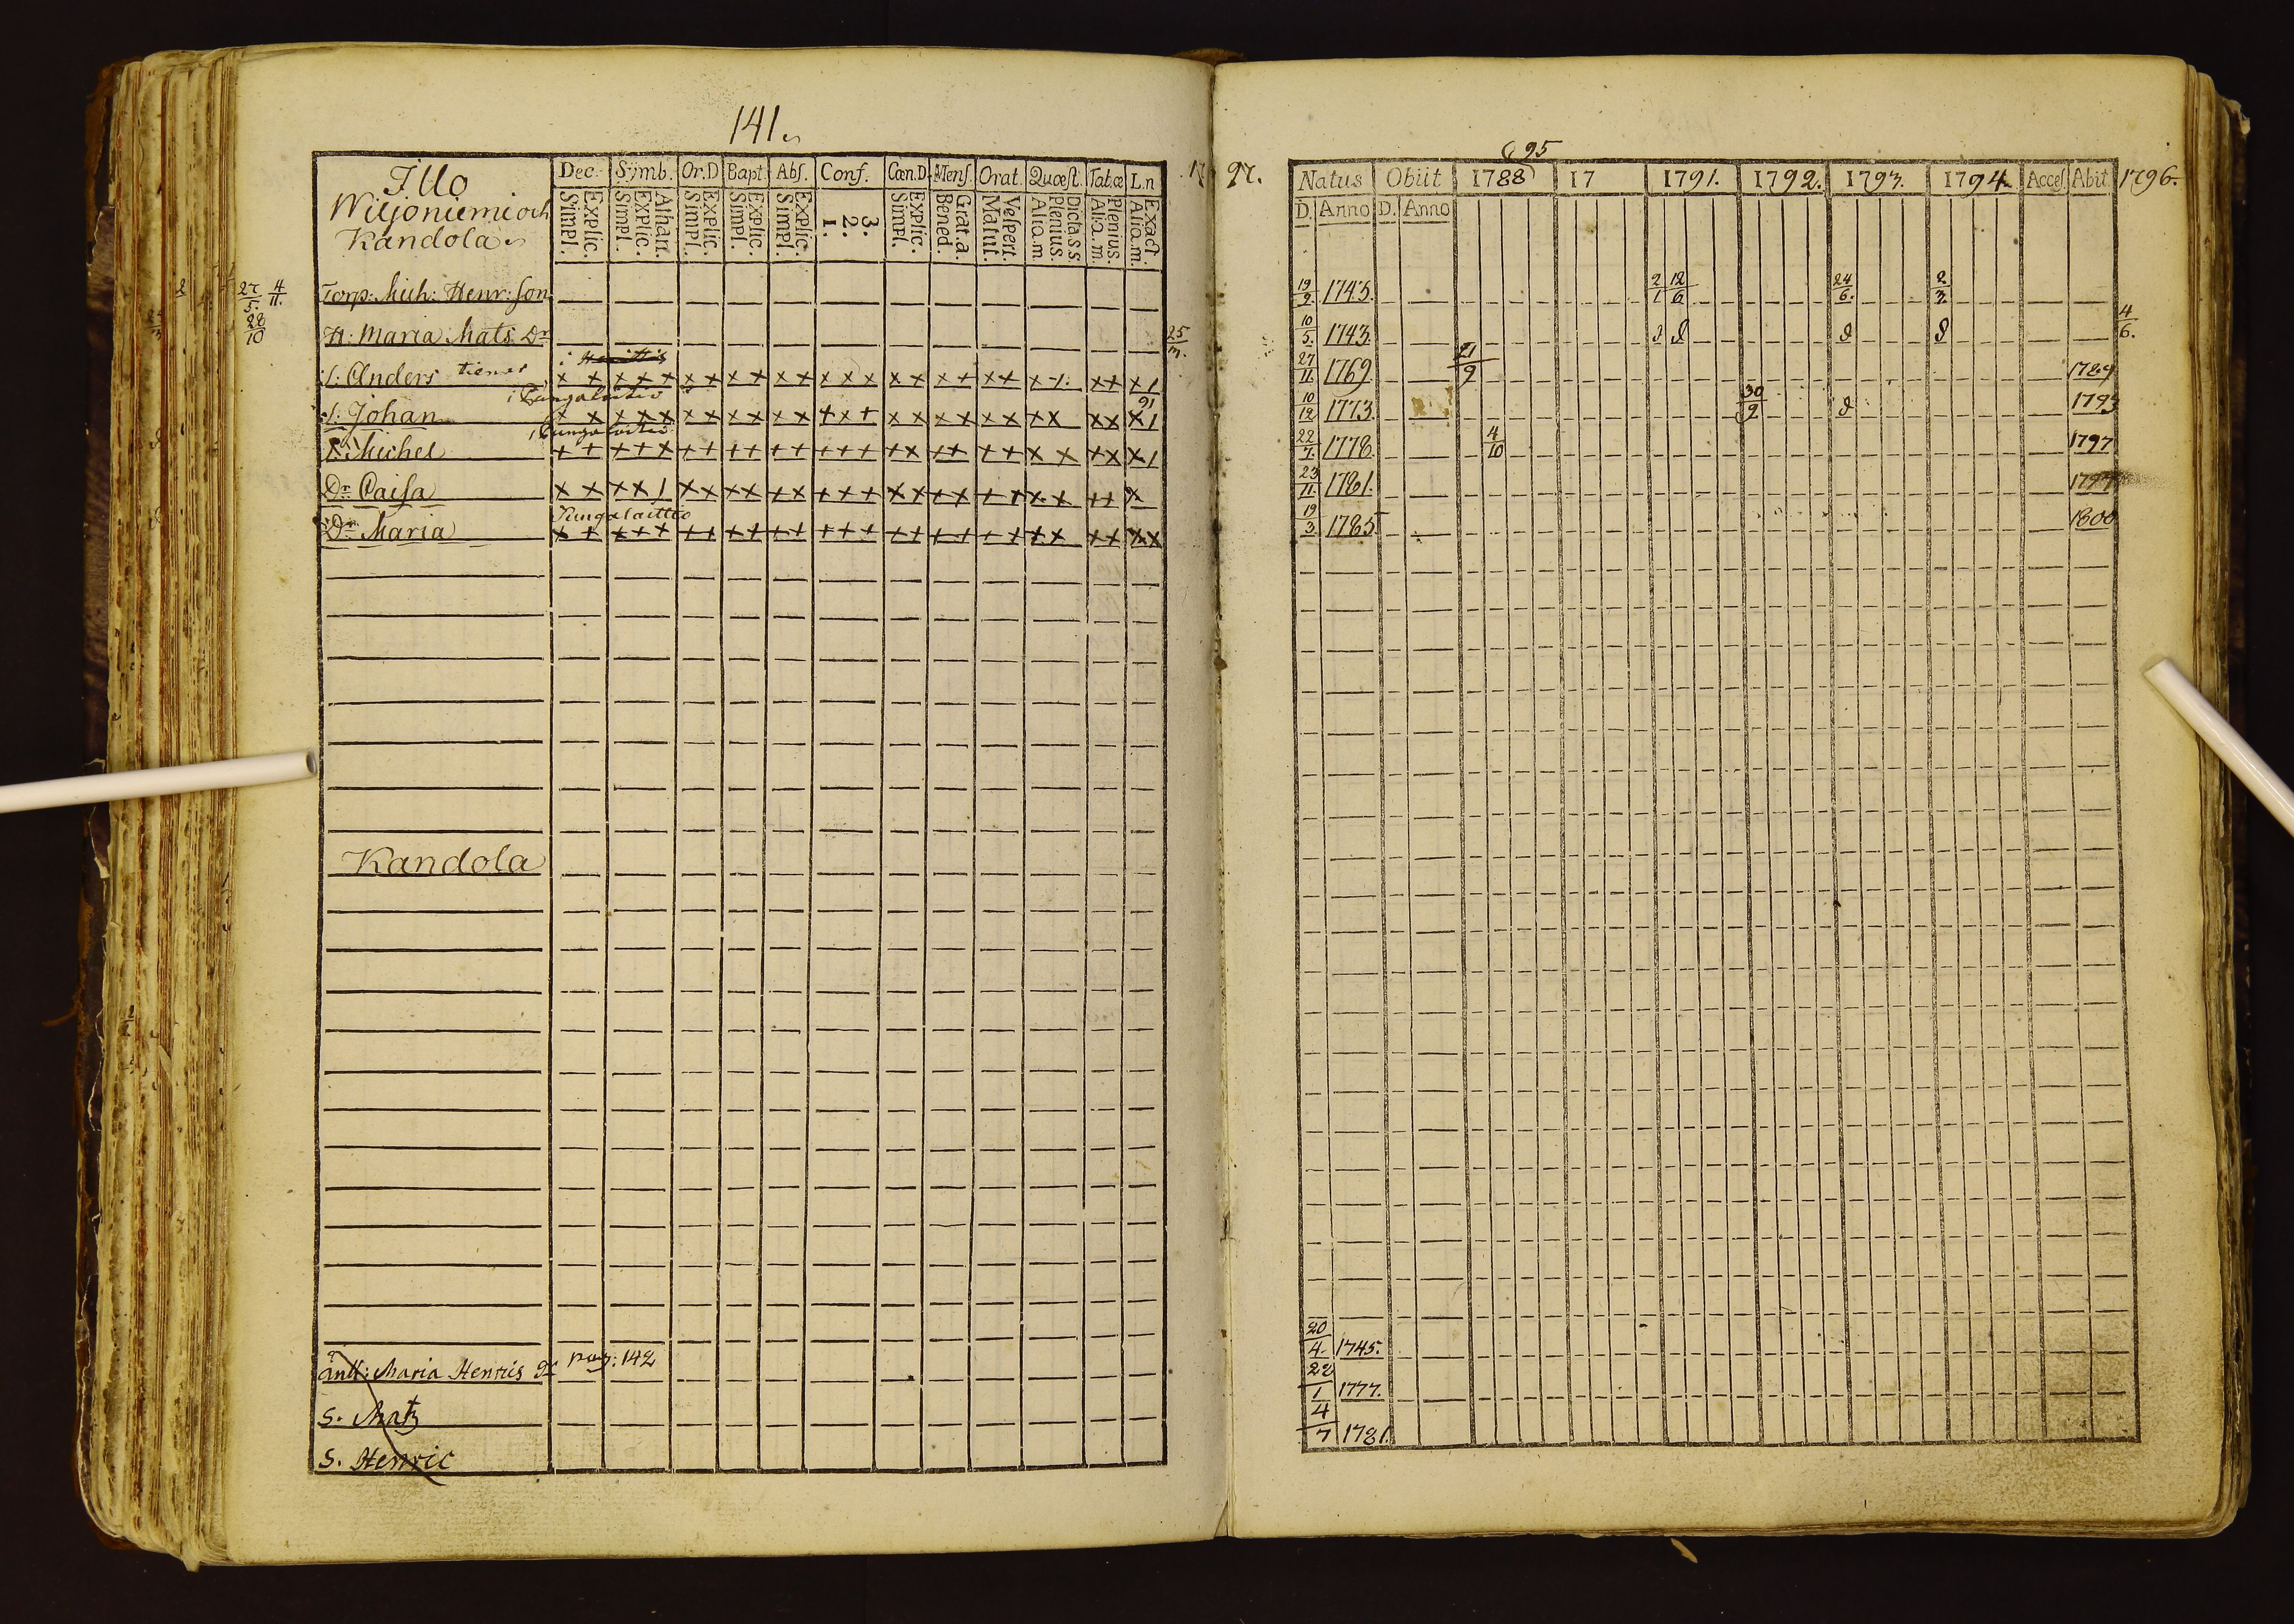 141.
Illo
Wiljoniemi och
Kandola
Dec. Symb. Or.D Bapt. Abs. Conf. Cœn.D. Mens. Orat. Quæst. Tab.œ L.n
Explic. Simpl. Athan. Explic. Simpl. Explic. Simpl. Explic. Simpl. Explic. Simpl. 3. 2. 1. Explic. Simpl. Grat.a. Bened. Vespert. Matut. Dicta.s.s. Plenius. Aliq.m. Plenius. Aliq.m. Exact. Aliq.m.
27/5. 4/11. Torp: Mich: Henr: son
28/10 H: Maria Mats Dr 25/3.
S: Anders tiener x x x x x x x x x x x x x x x x x x x x x x x 1
91
S: Johan x x x x x x x x x x x x + x + x x x x x x x x x x x 1
S: Michel + + + + x + + + + + + + + + x x + + + + x x + x x 1
Dr Caisa x x x x / x x x x x x + + + x x + x + + x x + + x
Kungalaittio
Dr Maria x x + + + + + + + + + + + + + + + + + x x x x x x
Kandola
Enk: Maria Henrics Dr pag: 142
S. Matz
S. Henric
1797.
95
Natus Obiit 1788 17 1791. 1792. 1793. 1794. Acces. Abit 1796.
D. Anno D. Anno
19/9. 1743. 2/1 12/6 24/6. 2/3.
10/5. 1743. 4/6.
27/11. 1769. 21/9 1789
10/12 1773. 30/9 1793
22/7. 1778. 4/10 1797
23/11. 1781.
19/3 1785 1800
20/4. 1745.
22/1 1777.
4/7 1781.